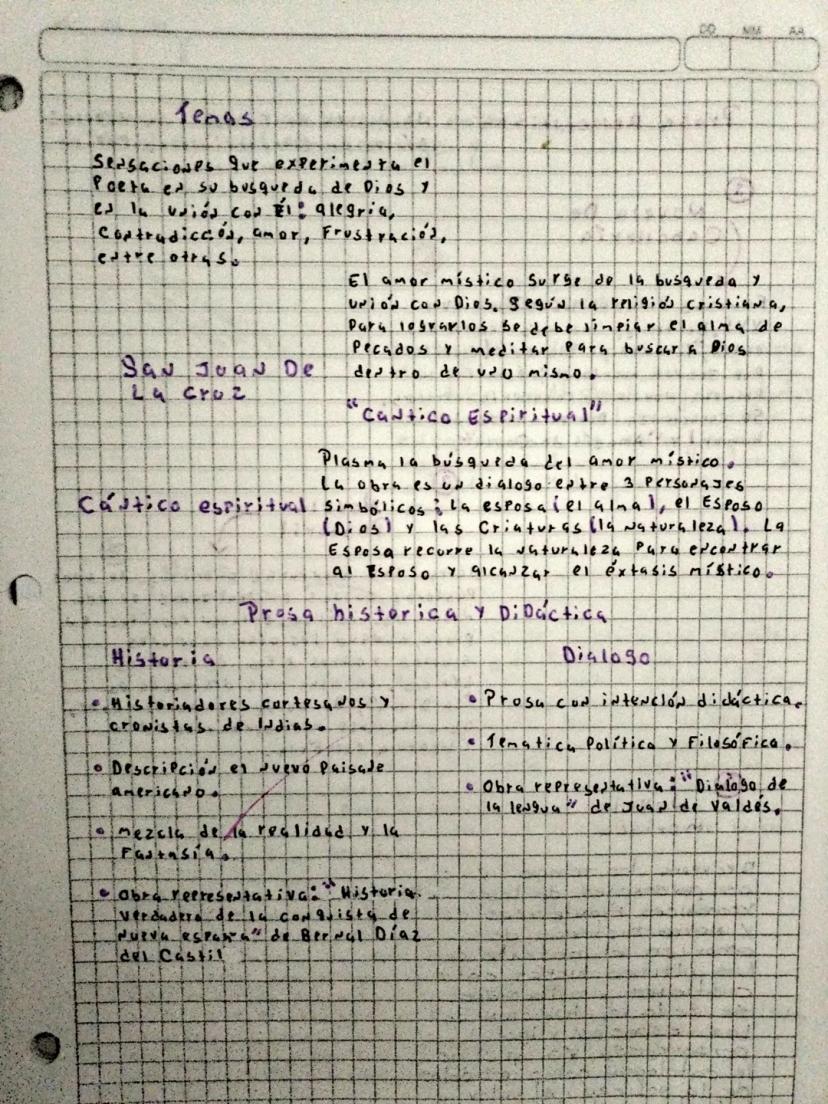 DD MM AA
Temas
Sensaciones que experimenta el
Poeta en su busqueda de Dios y
en la unión con Él: alegría,
Contradicción, amor, Frustración,
entre otras.
El amor místico surge de la busqueda y
unión con Dios. Según la religión cristiana,
Para lograrlos se debe limpiar el alma de
Pecados y meditar Para buscar a Dios
dentro de uno mismo.
San Juan De
La Cruz
"Cantico Espiritual"
Plasma la búsqueda del amor místico.
La obra es un dialogo entre 3 Personajes
Cántico espiritual simbólicos: La esposa (el alma), el Esposo
(Dios) y las Criaturas (la naturaleza). La
Esposa recorre la naturaleza Para encontrar
al Esposo y alcanzar el éxtasis místico.
Prosa historica y Didáctica
Historia
Dialogo
• Historiadores cortesanos y
cronistas de Indias.
• Descripción el nuevo Paisaje
americano.
• Mezcla de la realidad y la
Fantasía.
• Obra representativa: "Historia
verdadera de la conquista de
Nueva españa" de Bernal Díaz
del Castil
• Prosa con intención didáctica.
• Tematica Política y Filosófica.
• Obra representativa: "Dialogo de
la lengua" de Juan de Valdés.